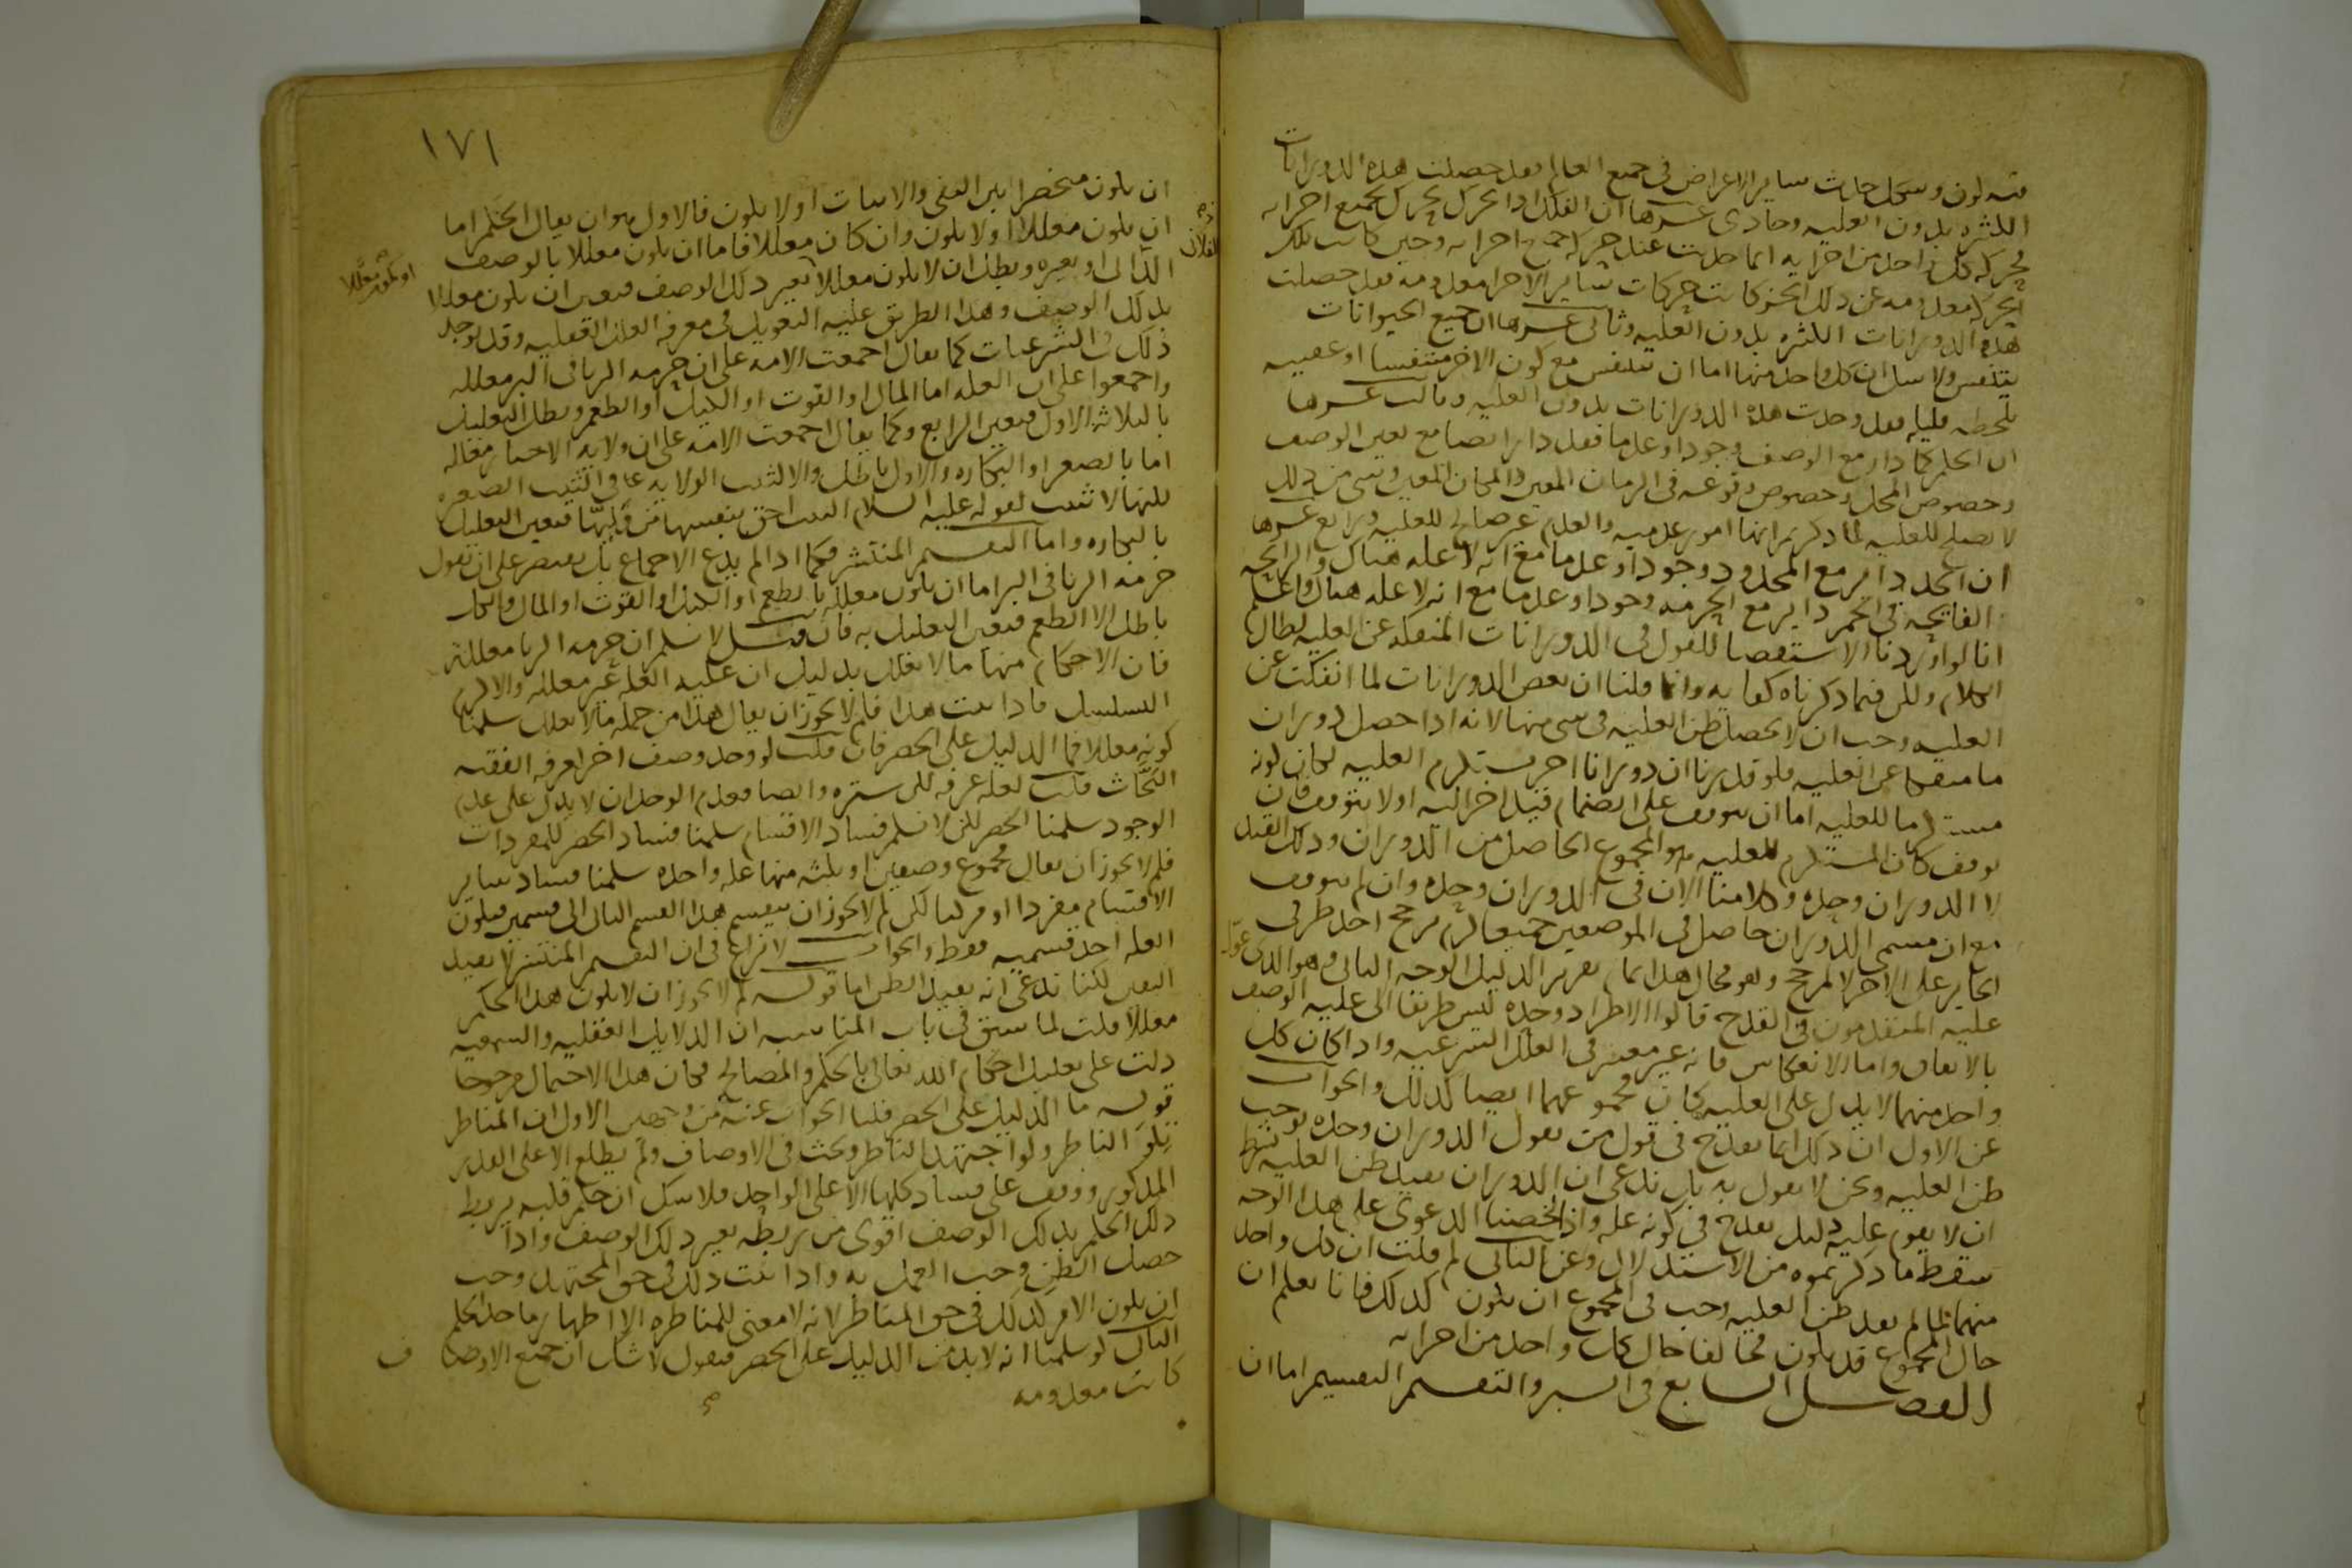 فيه لون وشكل حادث سائر الاعراض في جميع العالم فقد حصلت هذه الدورانات
الكثيرة بدون العلية وحادي عشرها ان الفلك اذا تحرك تحرك بجميع اجزائه
فحركة كل واحد من اجزائه انما حدثت عند حركة جميع اجزائه وحين كانت تلك
الحركة معدومة عن ذلك الجزء كانت حركات سائر الاجزا معدومة فقد حصلت
هذه الدورانات الكثيرة بدون العلية وثاني عشرها ان جميع الحيوانات
يتنفس ولا شك ان كل واحد منها اما ان يتنفس مع كون الاخر متنفسا او عقيبه
بلحظة قليلة فقد وجدت هذه الدورانات بدون العلية وثالث عشرها
ان الحكم كما دار مع الوصف وجودا وعدما فقد دار ايضا مع تعين الوصف
وخصوص المحل وخصوص وقوعه في الزمان المعين والمكان المعين وشي من ذلك
لا يصلح للعلية لما ذكرتم انها امور عدمية والعدم غير صالح للعلية ورابع عشرها
ان الحد دائر مع المحدود وجودا وعدما مع انه لا علة هناك والرائحة
الفائحة في الخمر دائر مع الحرمة وجودا وعدما مع انه لا علة هناك واعلم
انا لو اوردنا الاستقصا للقول في الدورانات المنفكة عن العلية لطال
الكلام ولكن فيما ذكرناه كفاية وانا قلنا ان بعض الدورانات لما انفكت عن
العلية وجب ان لا يحصل ظن العلية في شي منها لانه اذا حصل دوران
ما منفكا عن العلية فلو قدرنا ان دورانا اخر يستلزم العلية لكان كونه
مستلزما للعلية اما ان يتوقف على انضمام قيد اخر اليه اولا يتوقف فان
توقف كان المستلزم للعلية هو المجموع الحاصل من الدوران وذلك القيد
لا الدوران وحده وكلامنا الان في الدوران وحده وان لم يتوقف
مع ان مسمى الدوران حاصل في الموضعين جميعا لزم ترجح احد طرفي
الجايز على الاخر لا لمرجح وهو محال هذا تمام تقرير الدليل الوجه الثاني وهو الذي عوّل
عليه المتقدمون في القدح قالوا الاطراد وحده ليس طريقا الى علية الوصف
بالاتفاق واما الانعكاس فانه غير معتبر في العلل الشرعية واذا كان كل
واحد منهما لا يدل على العلية كان مجموعهما ايضا كذلك والجواب
عن الاول ان ذلك انما يقدح في قول من يقول الدوران وحده يوجب
ظن العلية ونحن لا نقول به بل ندعي ان الدوران يفيد ظن العلية بشرط
ان لا يقوم عليه دليل يقدح في كونه علة واذا لخصنا الدعوى على هذا الوجه
سقط ما ذكرتموه من الاستدلال وعن الثاني لم قلت ان كل واحد
منهما لما لم يفد ظن العلية وجب في المجموع ان يكون كذلك فانا نعلم ان
حال المجموع قد يكون مخالفا حال كل واحد من اجزائه
الفصل السابع في السبر والتقسيم التقسيم اما ان
١٧١
ان يكون منحصرا بين النفي والاثبات اولا يكون فالاول هو ان يقال الحكم اما
ان يكون معللا اولا يكون وان كان معللا فاما ان يكون معللا بالوصف
الفلاني
الذاني او بغيره وبطل ان لا يكون معللا بغير ذلك الوصف فتعين ان يكون معللا
او يكون معللا
بذلك الوصف وهذا الطريق عليه التعويل في معرفة العلل العقلية وقد يوجد
ذلك في الشرعيات كما يقال اجمعت الامة على ان حرمة الربا في البر معللة
واجمعوا على ان العلة اما المال او القوت او الكيل او الطعم وبطل التعليل
بالثلاثة الاول فتعين الرابع وكما يقال اجمعت الامة على ان ولاية الاجبار معللة
اما بالصغر او البكارة والاول باطل والا لثبتت الولاية على الثيب الصغيرة
لكنها لا تثبت لقوله عليه السلام الثيب احق بنفسها من وليها فتعين التعليل
بالبكارة واما التقسيم المنتشر فكما اذا لم يدع الاجماع بل يقتصر على ان نقول
حرمة الربا في البر اما ان يكون معللة بالطعم او الكيل او القوت او المال والكل
باطل الا الطعم فتعين التعليل به فان قيل لا نسلم ان حرمة الربا معللة
فان الاحكام منها ما لا يعلل بدليل ان علية العلة غير معللة والا لزم
التسلسل فاذا ثبت هذا فلم لا يجوز ان يقال هذا من جملة ما لا يعلل سلمنا
كونه معللا فما الدليل على الحصر فان قلت لو وجد وصف اخر لعرفه الفقيه
البحّاث قلت لعله عرفه لكن ستره وايضا فعدم الوجدان لا يدل على عدم
الوجود سلمنا الحصر لكن لا نسلم فساد الاقسام سلمنا فساد الحصر للمفردات
فلم لا يجوز ان يقال مجموع وصفين او ثلثة منها علة واحدة سلمنا فساد سائر
الاقسام مفردا او مركبا لكن لم لا يجوز ان ينقسم هذا القسم الثاني الى قسمين فيكون
العلة احد قسميه فقط والجواب لا نزاع في ان التقسيم المنتشر لا يفيد
اليقين لكنا ندعي انه يفيد الظن اما قوله لم لا يجوز ان لا يكون هذا الحكم
معللا قلت لما سبق في باب المناسبة ان الدلايل العقلية والسمعية
دلت على تعليل احكام الله تعالى بالحكم والمصالح فكان هذا الاحتمال مرجوحا
قوله ما الدليل على الحصر قلنا الجواب عنه من وجهين الاول ان المناظر
تلو الناظر ولو اجتهد الناظر وبحث في الاوصاف ولم يطلع الا على القدر
المذكور ووقف على فساد كلها الا على الواحد فلا شك ان حكم قلبه بربط
ذلك الحكم بذلك الوصف اقوى من ربطه بغير ذلك الوصف واذا
حصل الظن وجب العمل به واذا ثبت ذلك في حق المجتهد وجب
ان يكون الامر كذلك في حق المناظر لانه لا معنى للمناظرة الا اظهار ماخذ الحكم
الثاني لو سلمنا انه لا بد من الدليل على الحصر فنقول لا شك ان جميع الاوصاف
كانت معدومة